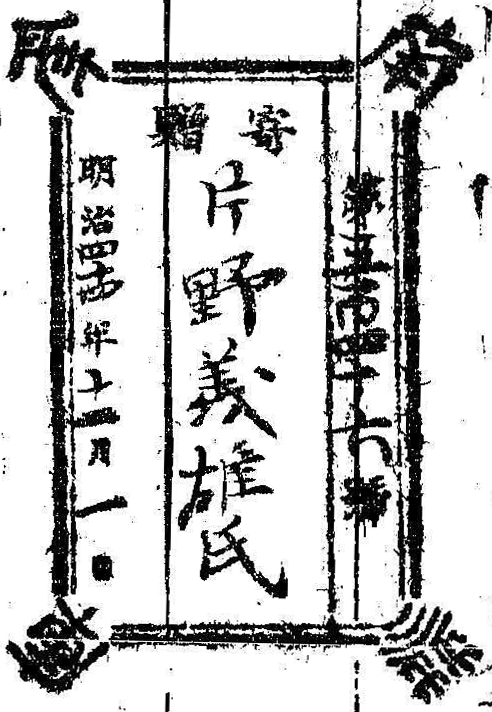 寄贈
第五百四十七號
片野義雄氏
明治四十年十二月一日